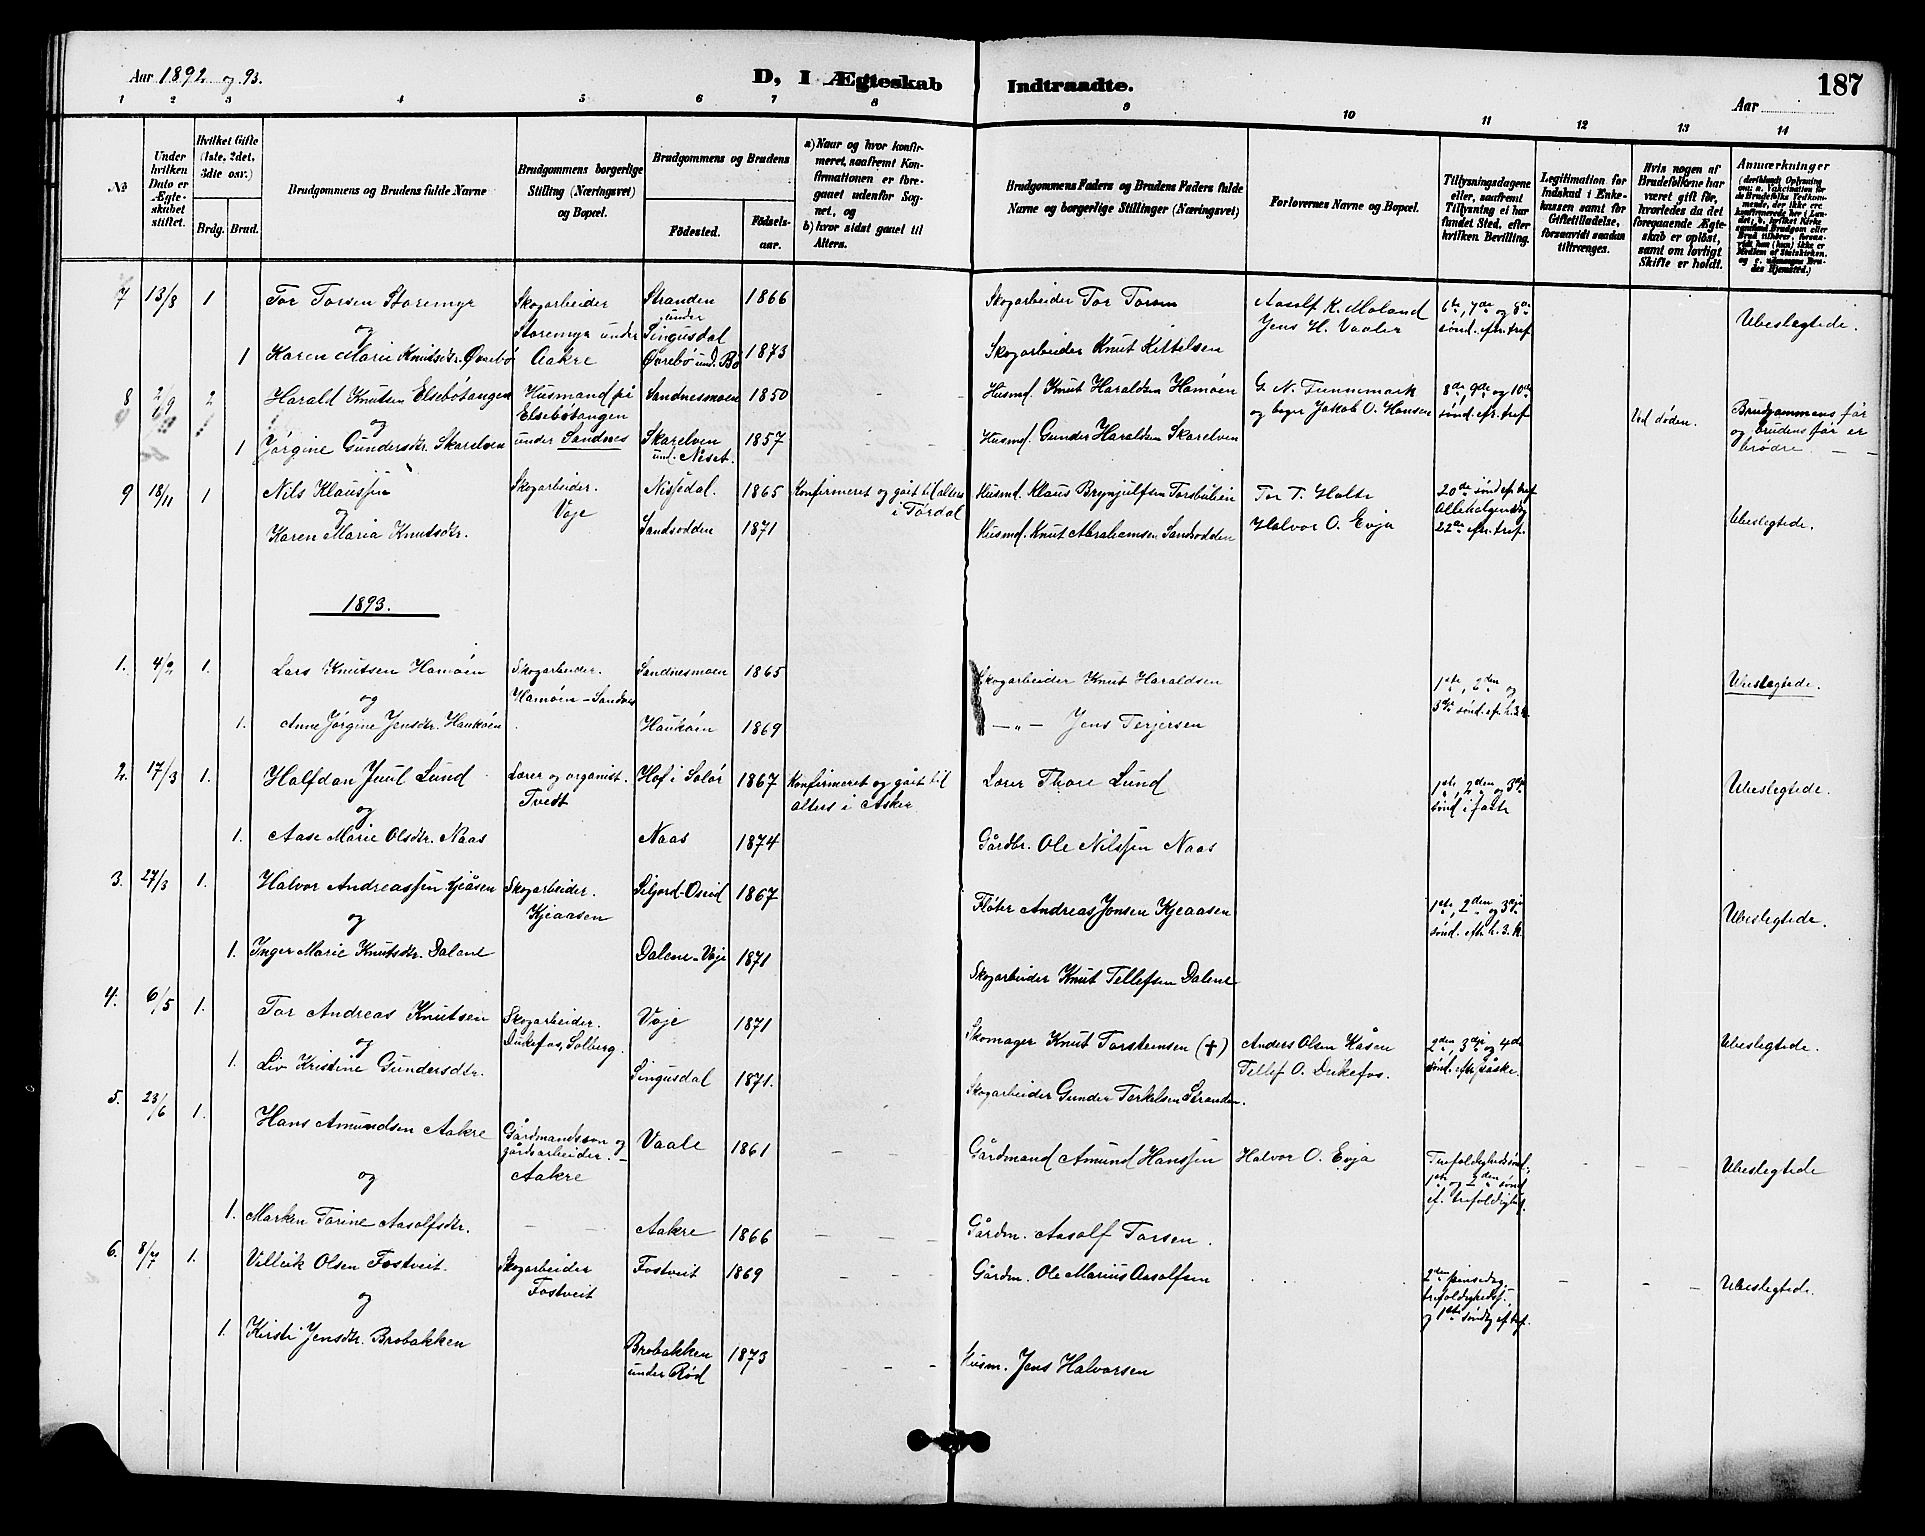 Aar 1892 og 93.
D, I Ægteskab Indtraadte.
187
Aar
1 2 3 4 5 6 7 8 9 10 11 12 13 14
No
Under hvilken Dato er Ægteskabet stiftet.
Hvilket Gifte (1ste, 2det, 3die osv.)
Brdg. Brud.
Brudgommens og Brudens fulde Navne
Brudgommens borgerlige Stilling (Næringsvei) og Bopæl.
Brudgommens og Brudens
Födested.
Födselsaar.
a) Naar og hvor konfirmeret, saafremt Konfirmationen er foregaaet udenfor Sognet, og
b) hvor sidst gaaet til Alters.
Brudgommens Faders og Brudens Faders fulde Navne og borgerlige Stillinger (Næringsvei)
Forlovernes Navne og Bopæl.
Tillysningsdagene eller, saafremt Tillysning ei har fundet Sted, efter hvilken Bevilling.
Legitimation for Indskud i Enkekassen samt for Giftetilladelse, forsaavidt saadan tiltrænges.
Hvis nogen af Brudefolkene har været gift før, hvorledes da det foregaaende Ægteskab er oplöst, samt om lovligt Skifte er holdt.
Anmærkninger
7 13/8 1 Tor Torsen Storemyr Skogarbeider Stranden 1866 Skogarbeider Tor Torsen Aasolf K. Moland 6te, 7de og 8de
og Storemyr under under Singusdal Jens H. Vaaler sönd. eft. tref. Ubeslegtede.
1 Karen Marie Knutsdtr. Øvrebö Aakre Øvrebö und. Bö 1873 Skogarbeider Knut Kittelsen
8 2/9 2 Harald Knutsen Elsebötangen Husmand på Sandnesmoen 1850 Husmd. Knut Haraldsen Hamöen G. N. Tunnemark 8de 9de og 10de
og Elsebötangen og boger Jakob O. Hansen sönd. eft. tref. Ved döden. Brudgommens far
1 Jörgine Gundersdtr. Skarelven under Sandnes Skarelven und. Neset. 1857 Husmd. Gunder Haraldsen Skarelven og brudens far er brödre
9 18/11 1 Nils Klaussen Skogarbeider. Nissedal. 1865 Konfirmeret og gået til alters Husmd. Klaus Brynjulfsen Torsbulien Tor T. Holte 20de sönd eft tref
og Voje i Tørdal Allehelgensdag
Karen Maria Knutsdtr. Sandsodden 1871 Husmd. Knut Abrahamsen Sandsodden Halvor O. Evja 22de eft. tref. Ubeslegtede.
1893.
1. 4/2 1. Lars Knutsen Hamöen Skogarbeider. Sandnesmoen 1865 Skogarbeider Knut Haraldsen 1ste, 2den og
og Hamöen - Sandnes 3die sönd. eft. h. 3. k. Ubeslegtede.
1. Anne Jörgine Jensdtr. Haukøen Haukøen 1869 — „ — Jens Terjersen
2. 17/3 1. Halfdan Juul Lund Lærer og organist. Hof i Solör 1867 Konfirmeret og gået til Lærer Thore Lund 1ste, 2den og 3die
og Tvedt alters i Asker sönd i faste Ubeslegtede.
1. Aase Marie Olsdtr. Naas Naas 1874 Gårdbr. Ole Nilssen Naas
3. 27/3 1. Halvor Andreassen Kjeåsen Skogarbeider. Siljord - 1867 Fløter Andreas Jonsen Kjeaasen 1ste, 2den og 3die
og Kjeaasen sönd. eft. h. 3. k. Ubeslegtede.
1. Inger Marie Knutsdtr. Dalene Dalene - Voje 1871 Skogarbeider Knut Tellefsen Dalene
4. 6/5 1. Tor Andreas Knutsen Skogarbeider. Voje 1871 Skomager Knut Torsteinsen (†) Anders Olsen Kåsen 2den, 3die og 4de
og Dukefos, Solberg. Tellef O. Dukefos. sönd. efter påske. Ubeslegtede.
1. Liv Kristine Gundersdtr. Singusdal 1871. Skogarbeider Gunder Terkelsen Stranden.
5. 23/6 1. Hans Amundsen Aakre Gårdmandssön og Vaale 1861 Gårdmand Amund Hanssen Halvor O. Evja Trefoldighedssönd.
gårdsarbeider. - 1ste og 2den sönd
og Aakre e. trefoldighed. Ubeslegtede
1. Marken Torine Aasolfsdtr. Aakre 1866 Gårdm. Aasolf Torsen.
6. 8/7 1. Villeik Olsen Fostveit. Skogarbeider Fostveit 1869 Gårdm. Ole Marius Aasolfsen 2den pinsedag,
og Fostveit trefoldighedss. Ubeslegtede.
og 1ste söndg eft tref.
1. Kirsti Jensdtr. Brobakken Brobakken under Rød 1873 Husm. Jens Halvorsen